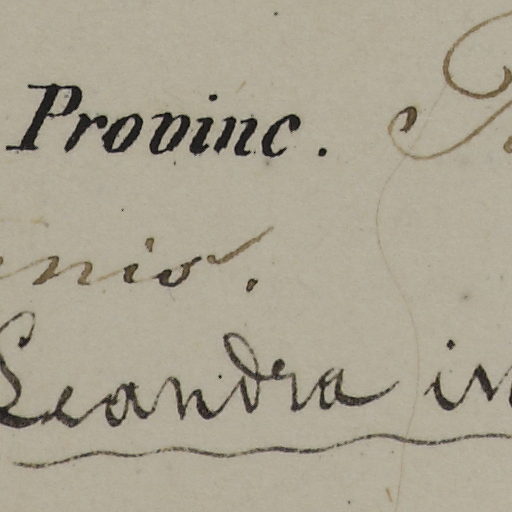 Provinc.
Leandra in